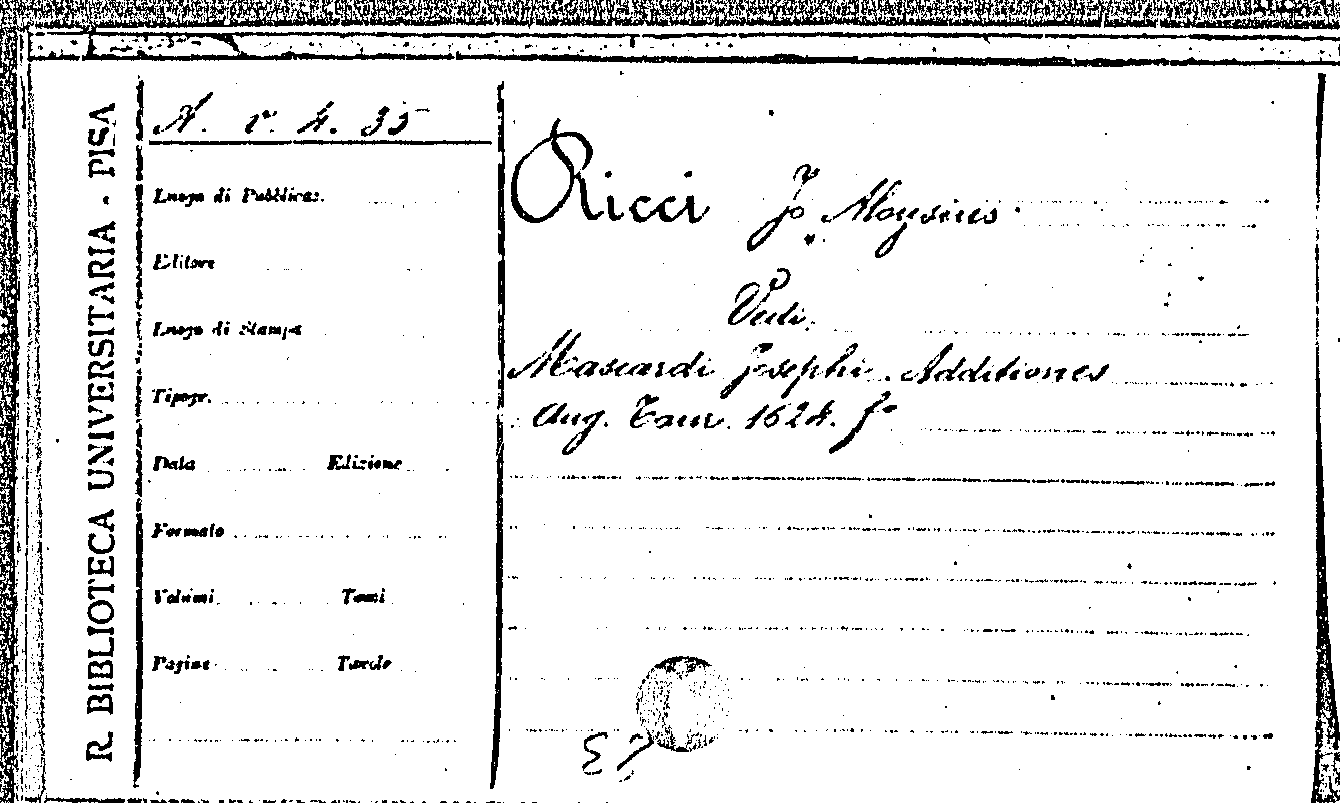 R. BIBLIOTECA UNIVERSITARIA - PISA
A. v. 4. 35
Luogo di Pubblicaz.
Editore
Luogo di Stampa
Tipogr.
Data Edizione
Formato
Volumi Tomi
Pagine Tavole
Ricci Jo. Aloysius
Vedi
Mascardi Josephi. Additiones
Aug. Taur. 1624. fo